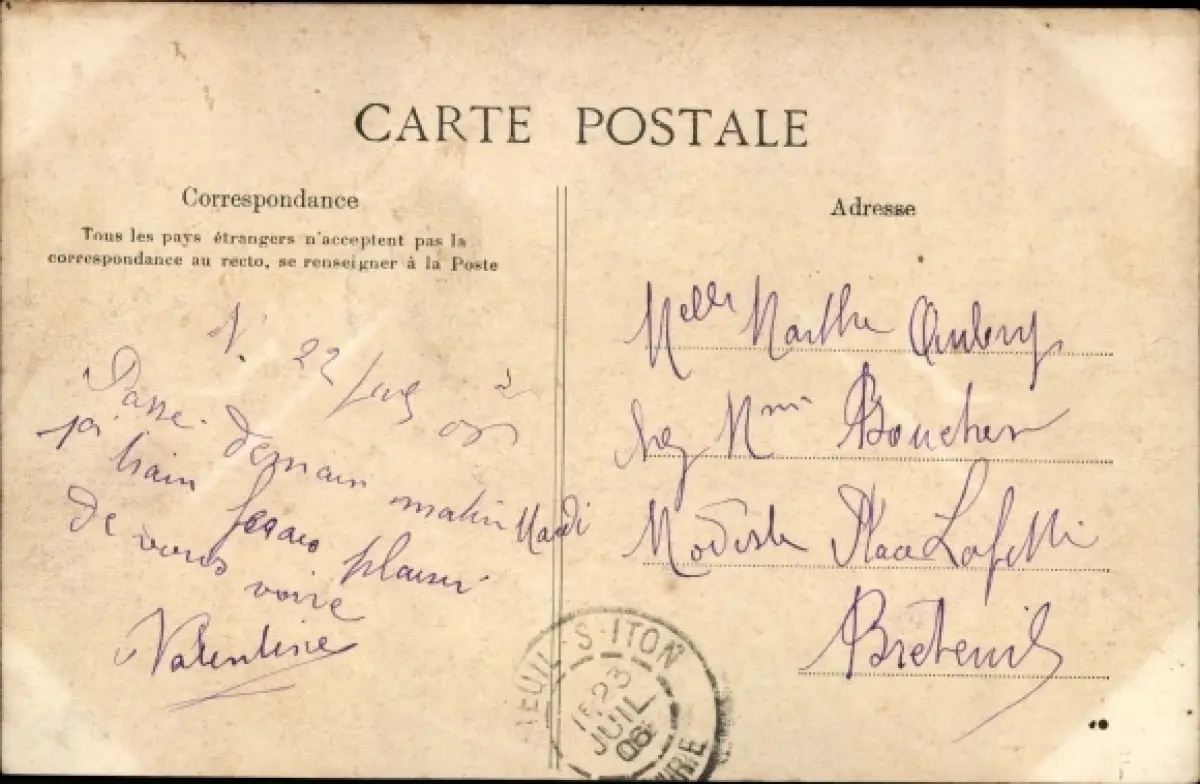 CARTE POSTALE
Correspondance
Tous les pays étrangers n'acceptent pas la
correspondance au recto, se renseigner à la Poste
22
Passe demain matin Mardi
train
plaisir
de vous voire
Valentine
Adresse
Melle Marthe Aubry
chez Mme Boucher
Modiste Place Lafitte
Breteuil
EUIL-S-ITON
23
JUIL
06
URE